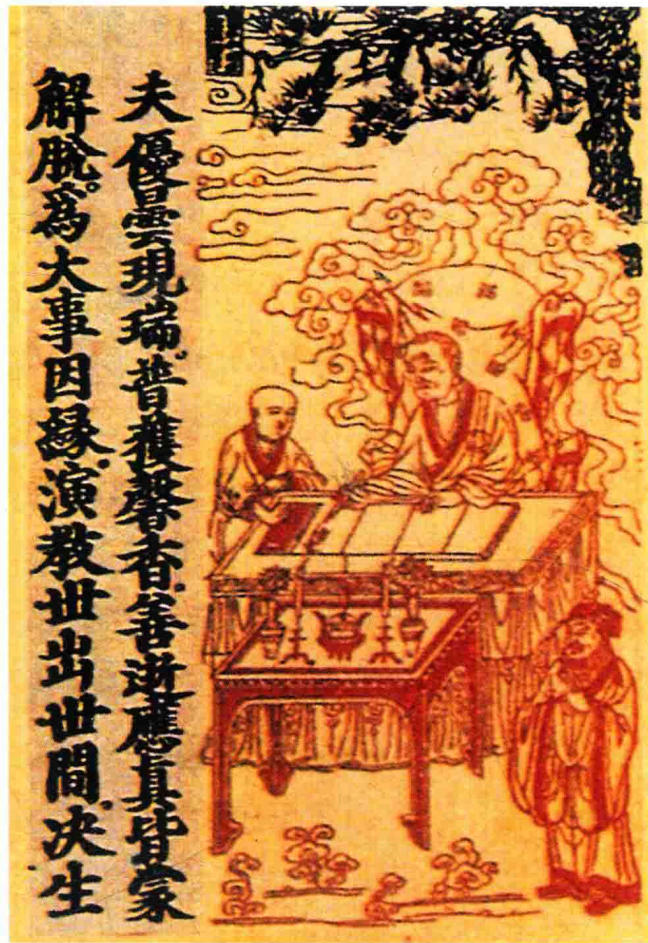 夫優曇現瑞。普獲馨香。善逝應真皆蒙
解脫。為大事因緣。演教世出世間。决生